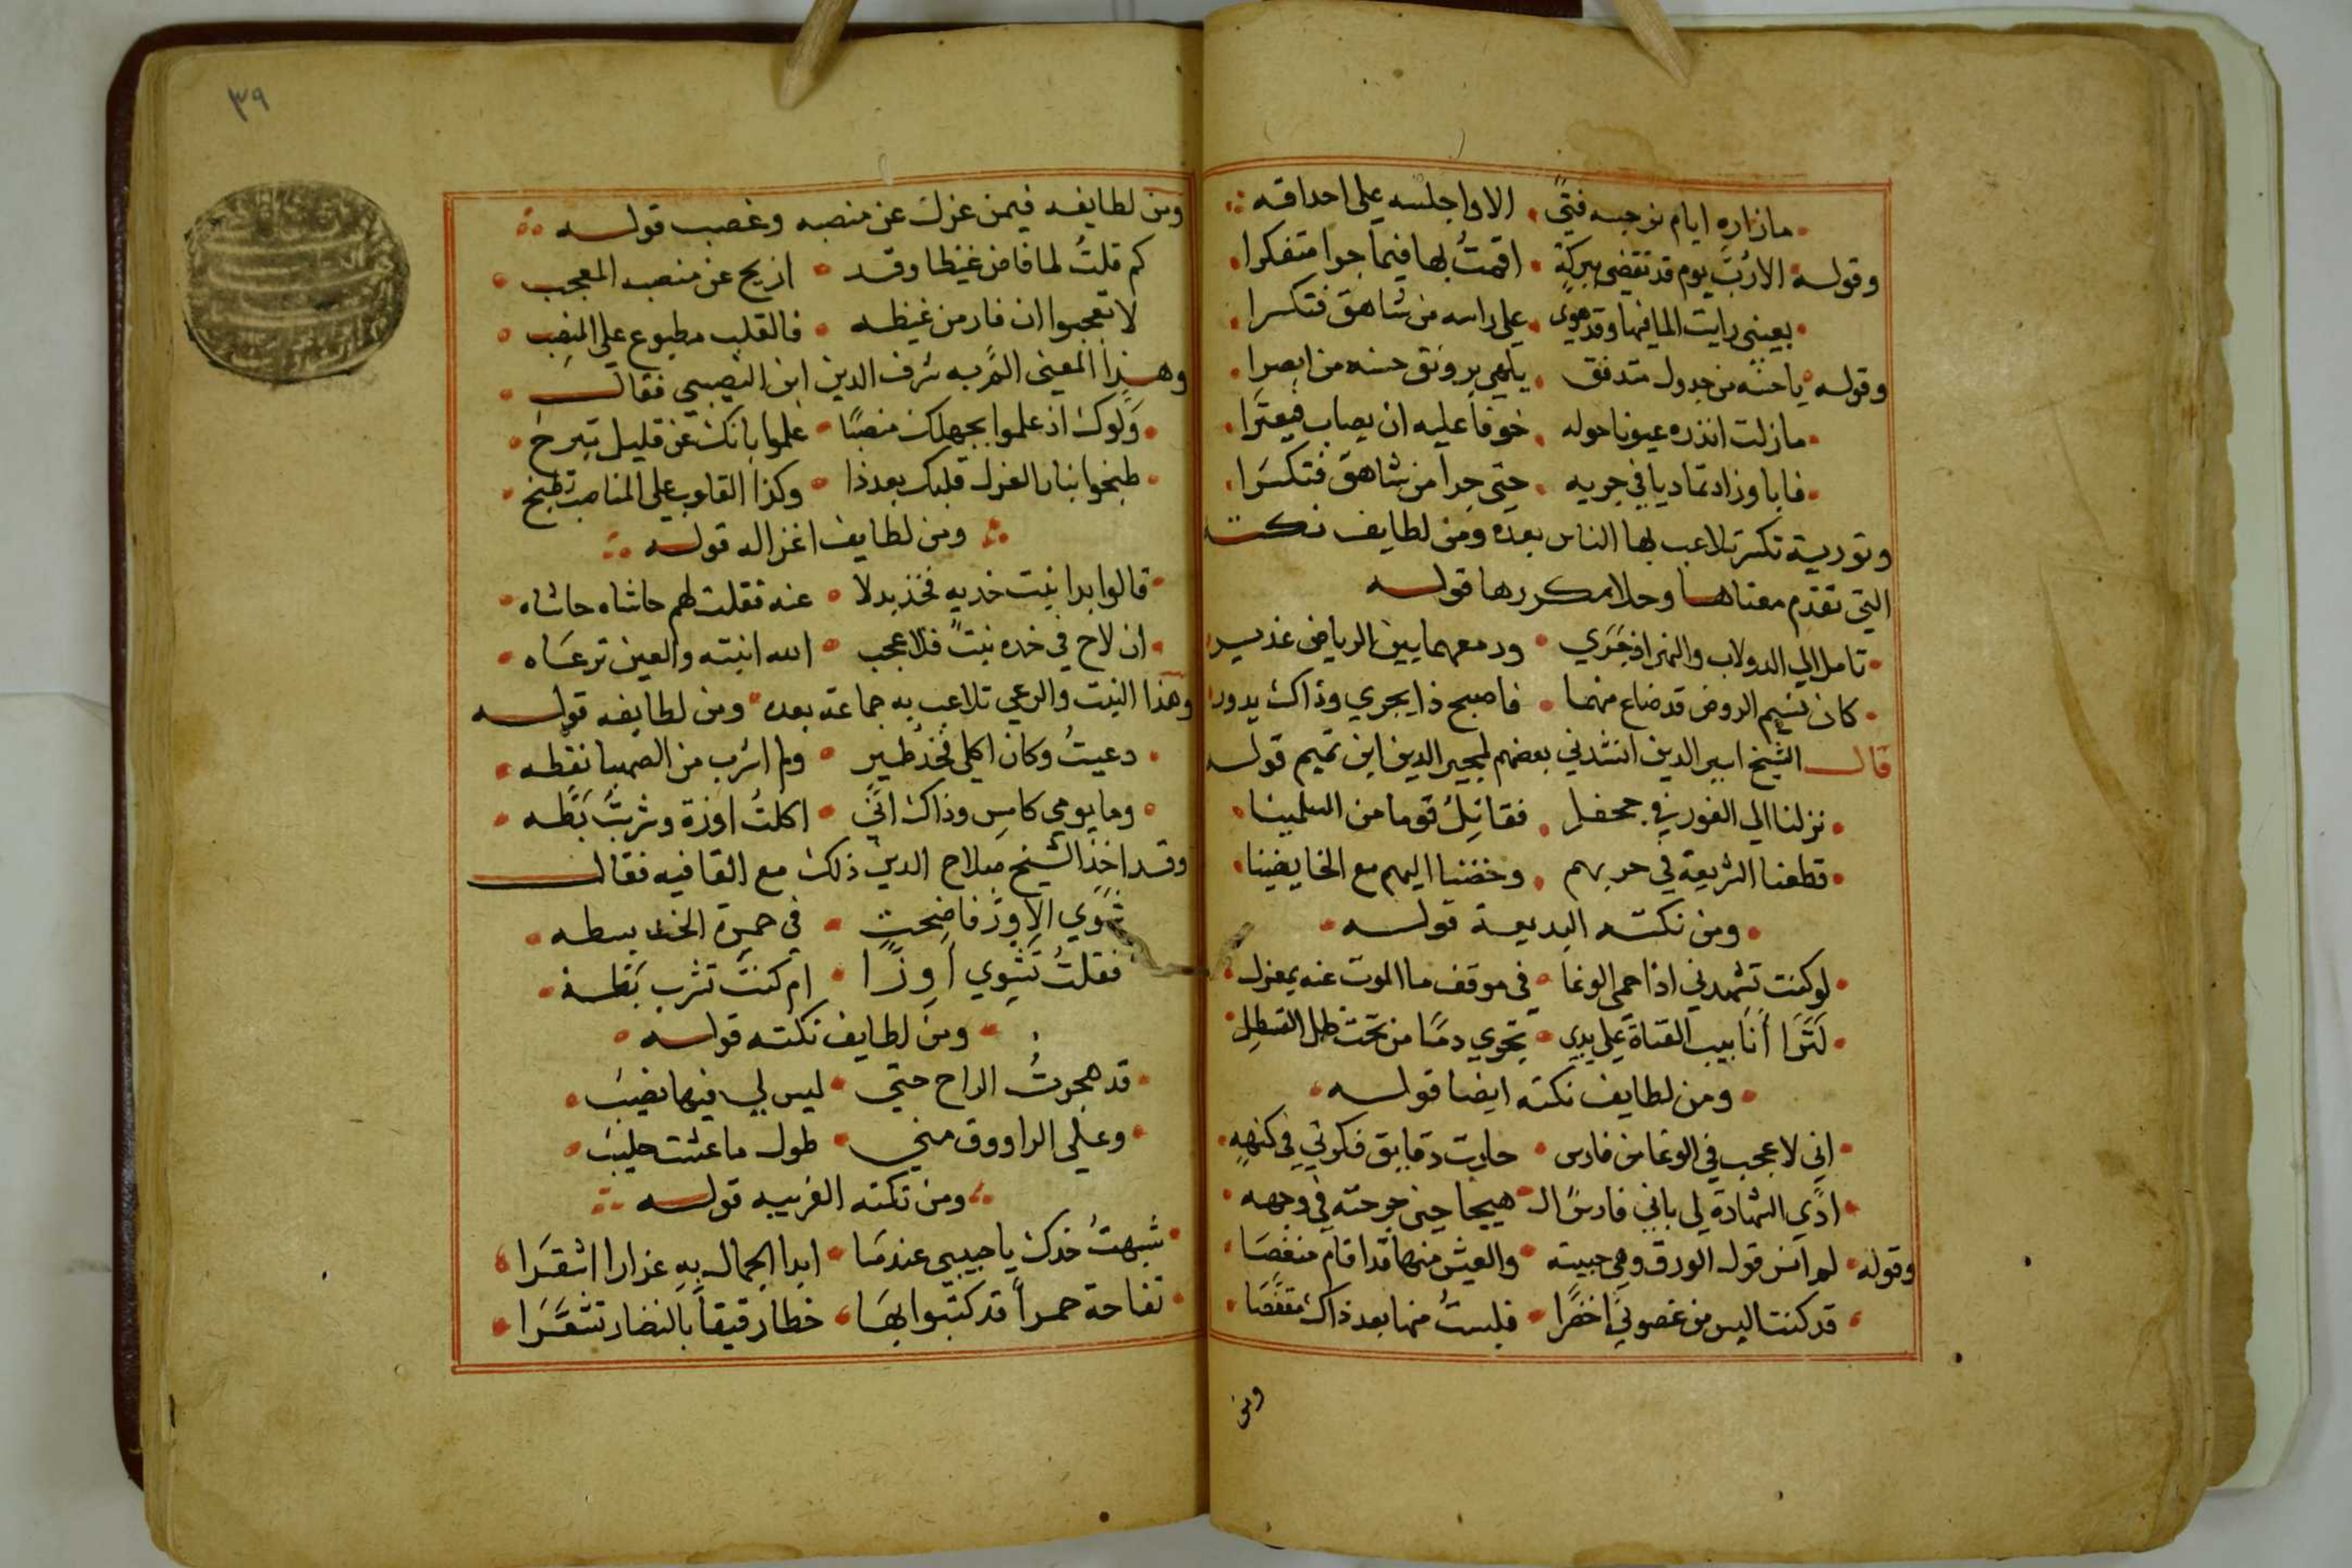 مازاره ايام نرجسه فتىً الا واجلسه على احداقه
وقوله الا رُبَّ يوم قد تقضى ببركة اقمتُ بها فيما جرا متفكرا
بعينى رايت الما فيها وقد هوى على راسه من شاهق فتكسرا
وقوله يا حسنه من جدول متدفق يلهي برونق حسنه من ابصرا
مازلت انذره عيونا حوله خوفا عليه ان يصاب فيعثرا
فابا وزاد تماديا في جريه حتى جرا من شاهق فتكسرا
وتورية تكسر تلاعب بها الناس بعده ومن لطايف نكته
التي تقدم معناها وحلا مكررها قوله
تامل الي الدولاب والنهر اذ جَرَي ودمعهما بين الرياض غدير
كان نسيم الروض قد ضاع منهما فاصبح ذا يجري وذاك يدور
قال الشيخ اثير الدين انشدني بعضهم لمجير الدين ابن تميم قوله
نزلنا الي الغور في جحفل فقاتِل قوما من المسلمينا
قطعنا الشريعة في حربهم وخضنا اليهم مع الخايضينا
ومن نكته البديعة قوله
لو كنت تشهدني اذا حمي الوغا في موقف ما الموت عنه بمعزل
لَتَرَا أنابيب القناة على يدي تجري دمًا من تحت ظل القسطل
ومن لطايف نكته ايضا قوله
اني لا عجب في الوغا من فارس حارت دقايق فكرتي في كنههِ
ادّي الشهادة لي باني فارسُ الـ هيجا حين جرحته في وجهه
وقوله لم انس قول الورق وهي حبيسة والعيش منها قد اقام منغصَا
قد كنت البس من غصوني اخضرًا فلبستُ منها بعد ذاك مقفصَا
ومن
٣٩
ومن لطايفه فيمن عزل عن منصبه وغصب قوله
كم قلتُ لما فاض غيظا وقد ازيح عن منصبه المعجب
لا تعجبوا ان فار من غيظه فالقلب مطبوع على المنصب
وهذا المعنى المّ به شرف الدين ابن النصيبي فقال
وَلّوك اذ علموا بجهلك منصبًا علموا بانك عن قليل تبرح
طبخوا بنار العزل قلبك بعد ذا وكذا القلوب على المناصب تطبخ
ومن لطايف اغزاله قوله
قالوا بدا نبت خديه فخذ بدلا عنه فقلت لهم حاشاه حاشاه
ان لاح في خده نبتٌ فلا عجب الله انبته والعين ترعَاه
وهذا النبت والرعي تلاعب به جماعة بعده ومن لطايفه قوله
دعيتُ وكان اكلي فخذ طير ولم اشرب من الصهبا نقطه
وما يومي كامسِ وذاك انّي اكلتُ اوزة وشربتُ بَطّه
وقد اخذ الشيخ صلاح الدين ذلك مع القافيه فقال
شَوي الاِوز فاضحت في حمرة الخد بسطه
فقلتُ تَشوِي اَوِزًّا ام كنت تشرب بَطه
ومن لطايف نكته قوله
قد هجرتُ الراح حتي ليس لي فيها نصيبُ
وعلي الراووق مني طول ما عشت حليبُ
ومن نكته الغريبه قوله
شبهتُ خدك يا حبيبي عندمَا ابدا الجمال بهِ عذارا اشقَرا
تفاحة حمراً قد كتبوا بهَا خطا رقيقاً بالنضار تشعَّرَا